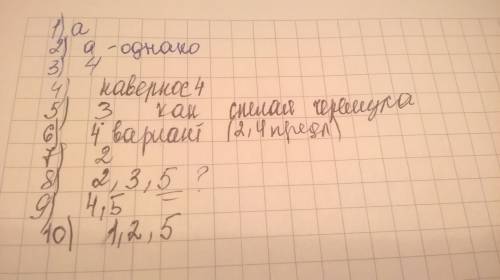 1) а
2) а - однако
3) 4
4) наверное 4
5) 3 как спелая черемуха
6) 4 вариант (2,4 предл)
7) 2
8) 2, 3, 5 ?
9) 4, 5
10) 1, 2, 5